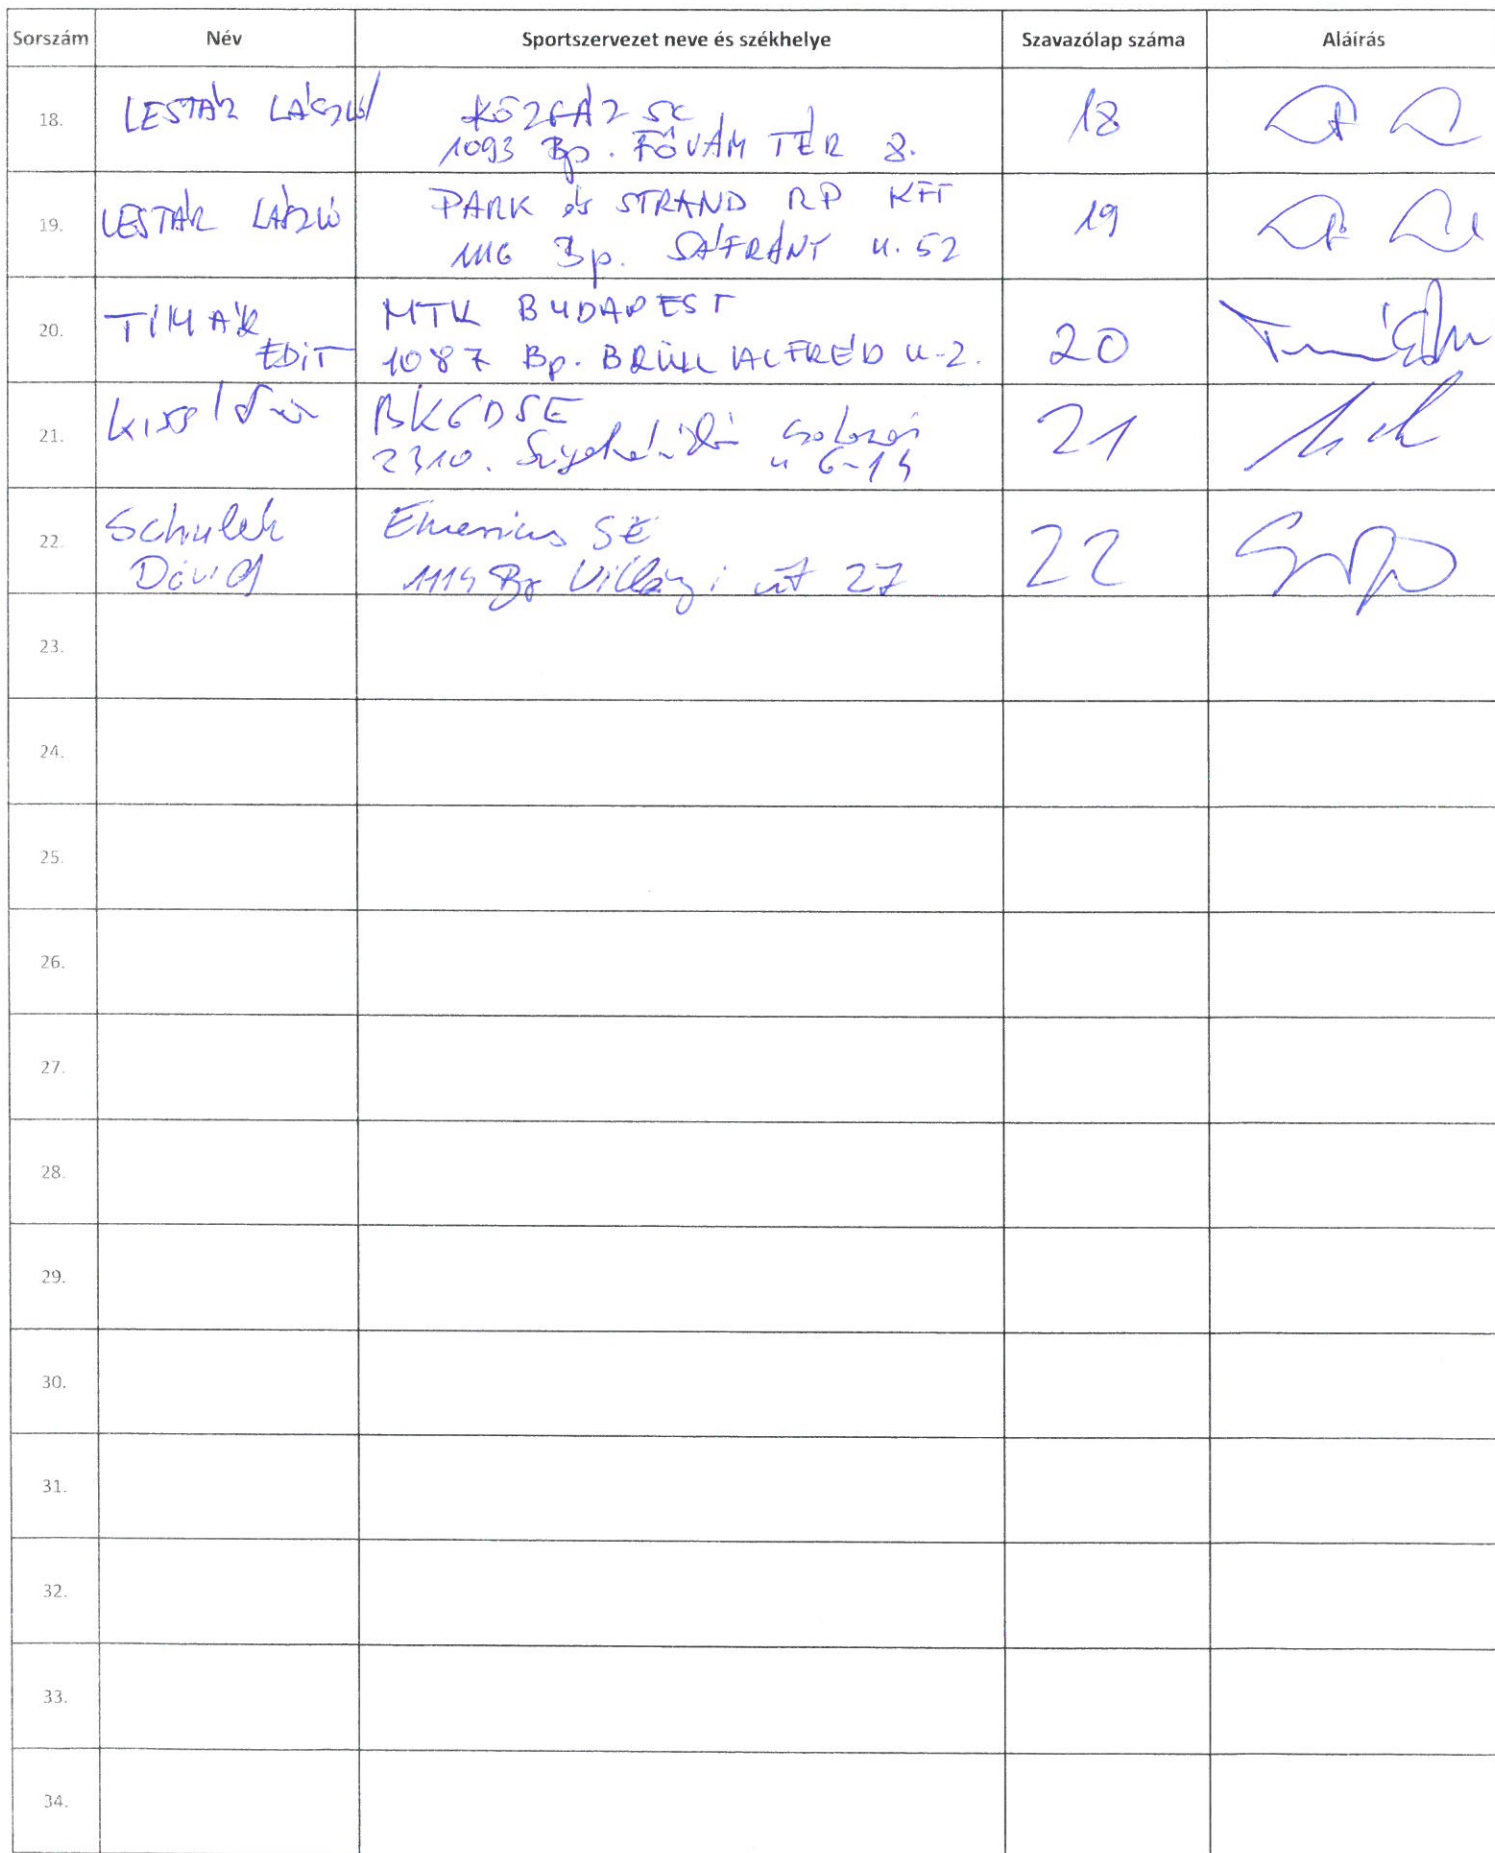 Sorszám Név Sportszervezet neve és székhelye Szavazólap száma Aláírás
18. LESTÁR LÁSZLÓ KÖZGÁZ SC 18
1093 Bp. FŐVÁM TÉR 8.
19. LESTÁR LÁSZLÓ PARK és STRAND RP KFT 19
1116 Bp. SÁFRÁNY u. 52
20. TÍMÁR MTK BUDAPEST 20
EDiT 1087 Bp. BRÜLL ALFRÉD u. 2.
21. Kiss BKGDSE 21
2310.
u 6-14
22. Schulek Emericus SE 22
Dávid 1114 Bp Villányi út 27
23.
24.
25.
26.
27.
28.
29.
30.
31.
32.
33.
34.